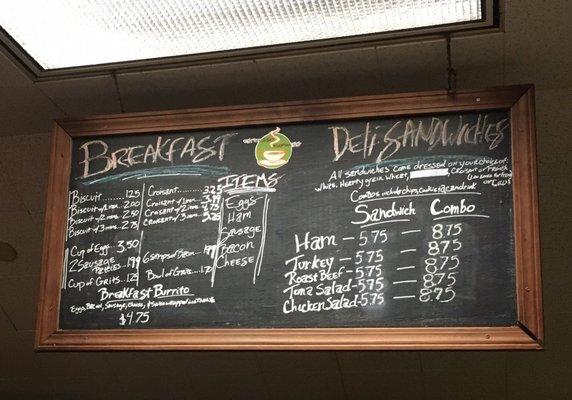 BREAKFAST
ITEMS
Biscuit ...... 1.25
Biscuit w/ 1 item. 2.00
Biscuit w/ 2 items. 2.50
Biscuit w/ 3 items. 2.75
Croissant ........ 3.25
Croissant w/ 1 item. 3.99
Croissant w/ 2 items 4.75
Croissant w/ 3 items 5.25
Eggs
Ham
Sausage
Bacon
Cheese
Cup of Eggs. 3.50
2 Sausage Patties 1.99
Cup of Grits .. 1.25
Bowl of Grits ..
Breakfast Burrito
Eggs, Bacon, Sausage, Cheese, & Salsa wrapped
$4.75
DELI SANDWICHES
All sandwiches come dressed on your choice of:
White, Hearty grain Wheat, Croissant or French
Combos include chips, cookie & a drink
Sandwich Combo
Ham - 5.75 - 8.75
Turkey - 5.75 - 8.75
Roast Beef - 5.75 - 8.75
Tuna Salad - 5.75 - 8.75
Chicken Salad - 5.75 - 8.75